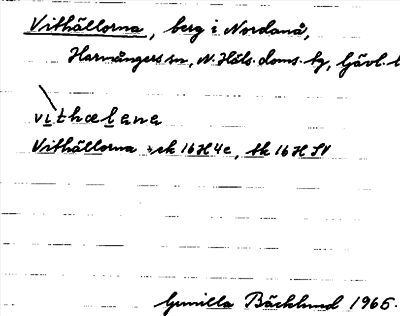 Vithällorna, berg i Nordanå,
Harmångers sn, N. Häls. doms. tg, Gävl. l
vithælana
Vithällorna ek 16H4e, tk 16H SV
Gunilla Bäcklund 1965.